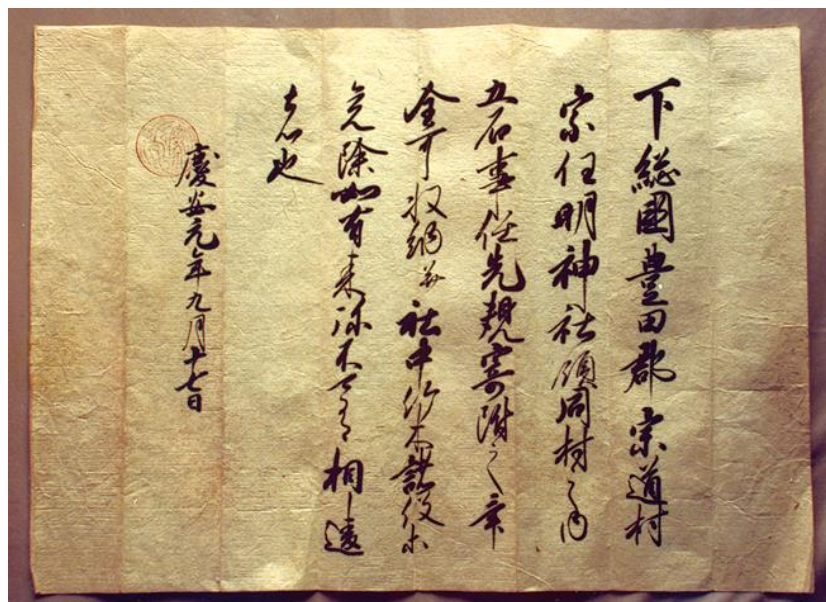 下総國豊田郡宗道村
宗任明神社領同村之内
五石事任先規寄附之畢
全可収納并社中竹木諸役等
免除如有来弥不可有相違
者也
慶安元年九月十七日